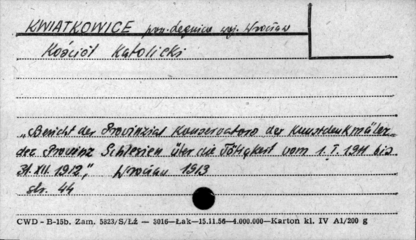 KWIATKOWICE pow. Legnica woj. Wrocław
Kościół Katolicki
„Bericht des Provinzial Konservators der Kunstdenkmäler
der Provinz Schlesien über die Tätigkeit vom 1.I.1911 bis
31.XII.1912", Wrocław 1913
str. 44
CWD - B-15b. Zam. 5823/S/Łż — 3016—Łak—15.11.56—4.000.000—Karton kl. IV A1/200 g